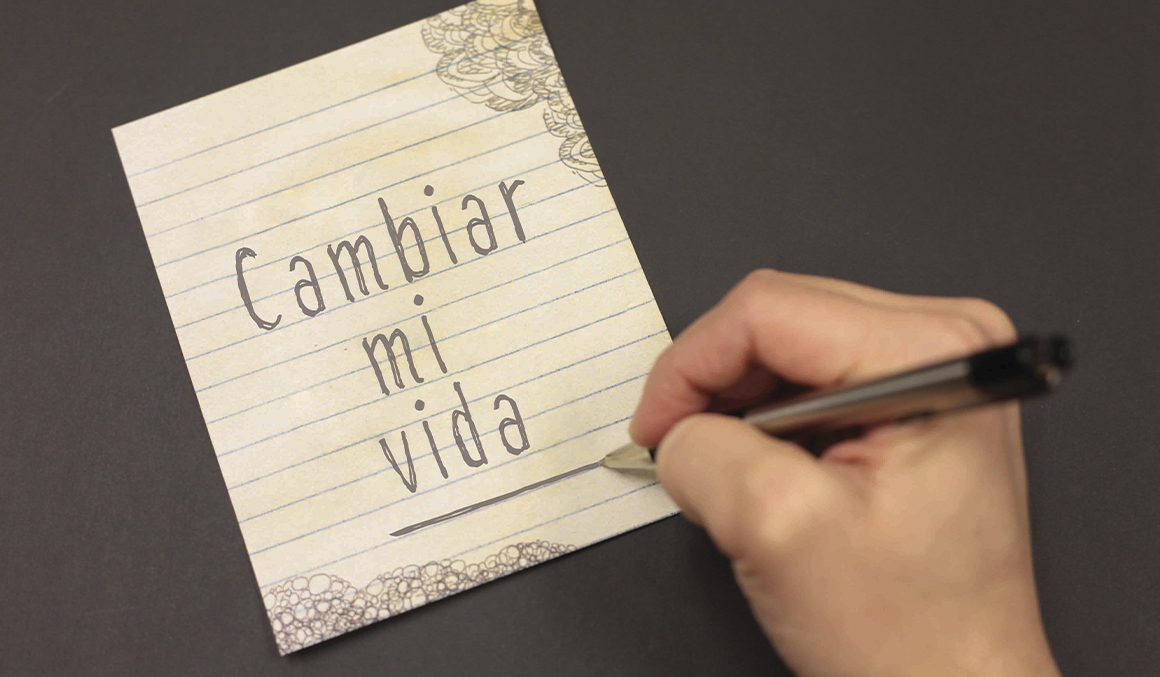 Cambiar
mi
vida